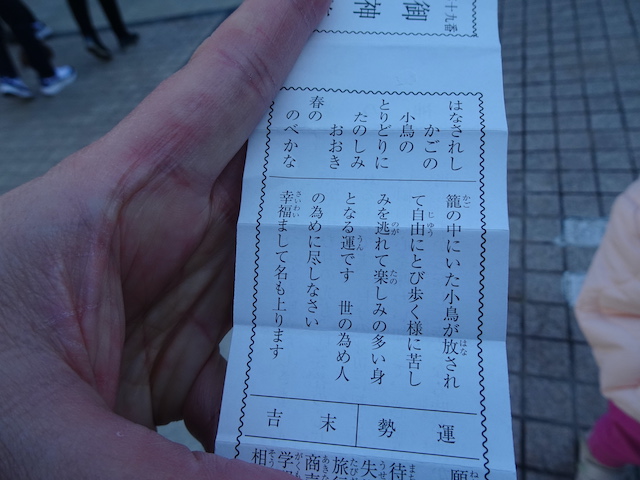 十九番
御
神
はなされし
かごの
小鳥の
とりどりに
たのしみ
おおき
春の
のべかな
籠の中にいた小鳥が放され
て自由にとび歩く様に苦し
みを逃れて楽しみの多い身
となる運です 世の為め人
の為めに尽しなさい
幸福まして名も上ります
運勢
末吉
願
待
失
旅
商
学
相